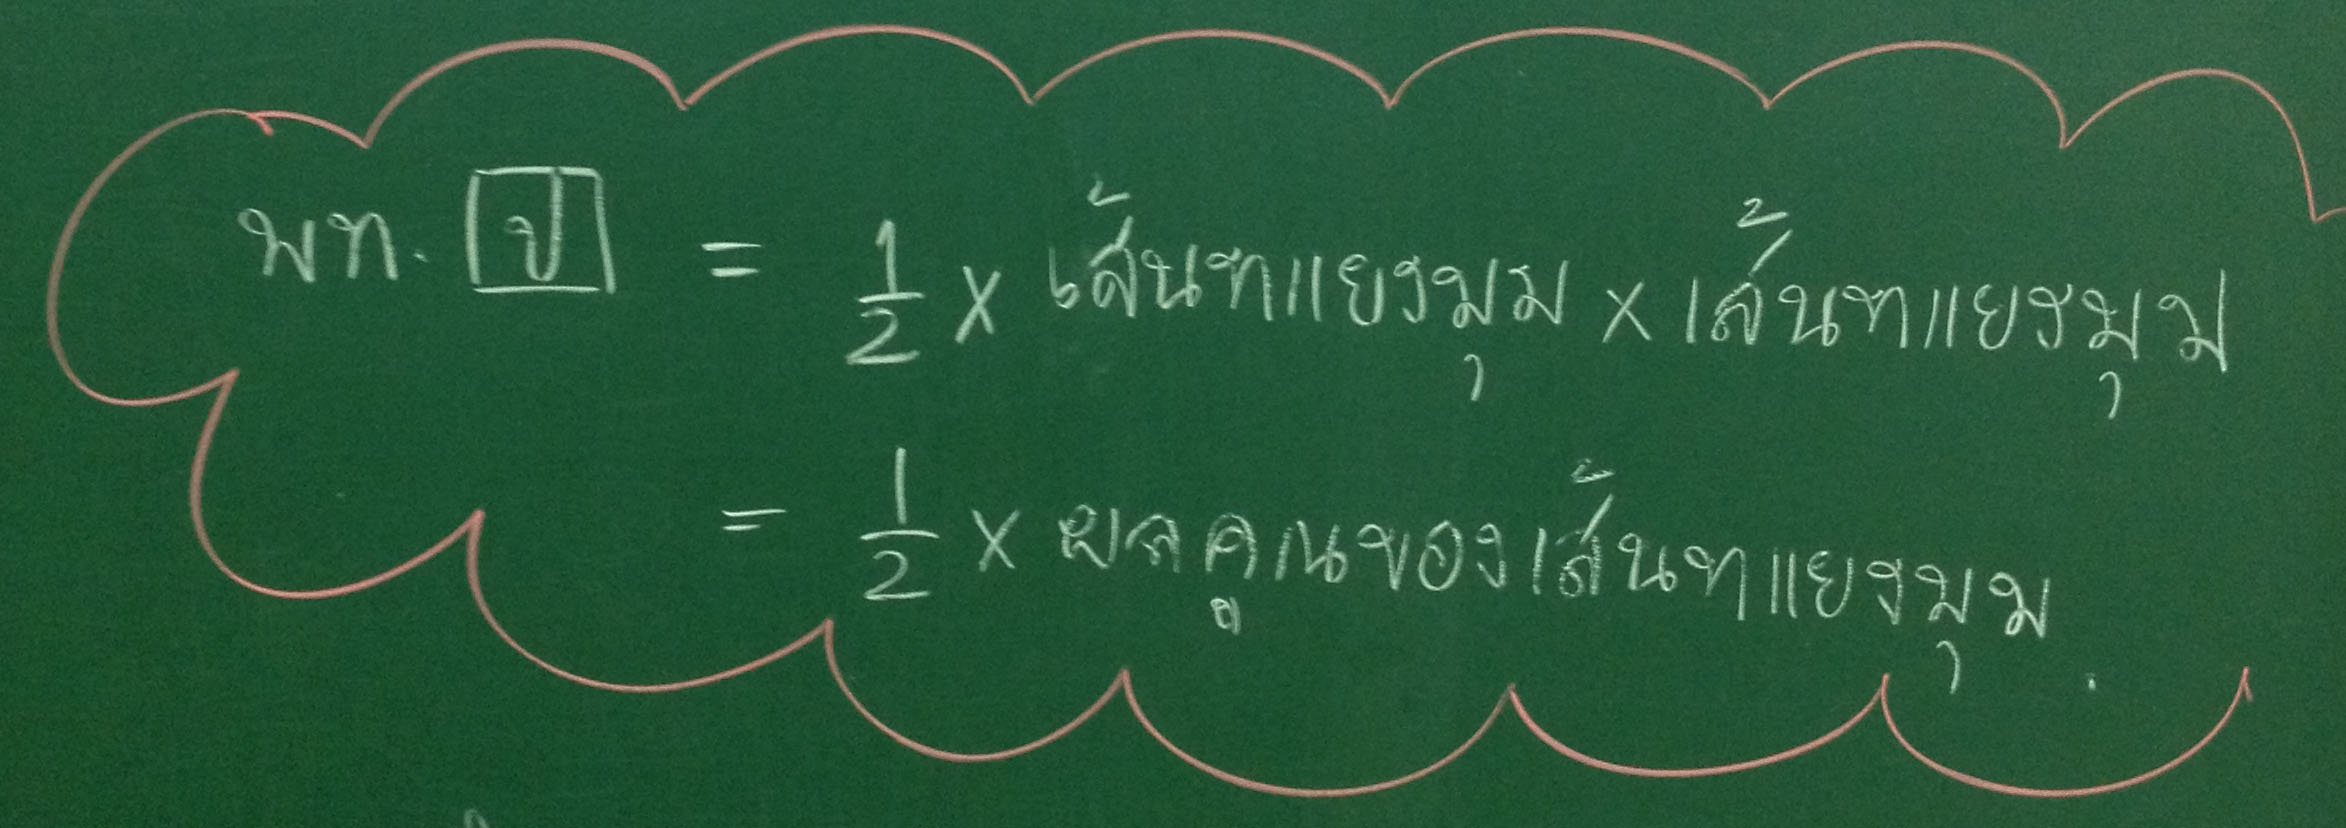 พท. ป = 1/2 x เส้นทแยงมุม x เส้นทแยงมุม
= 1/2 x ผลคูณของเส้นทแยงมุม.